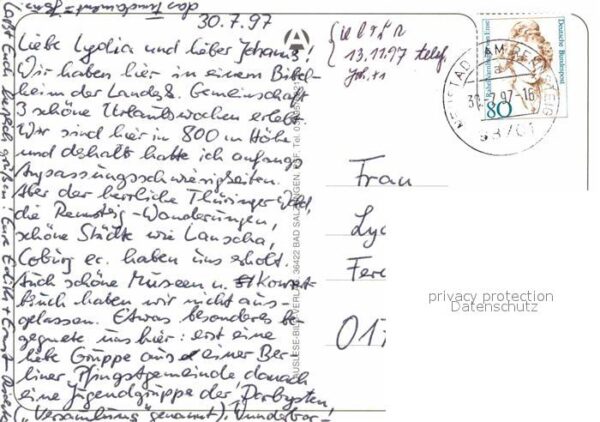 30.7.97
Liebe Lydia und lieber Johannes!
Wir haben hier in einem Bibel-
heim der Landesk. Gemeinschaft
3 schöne Urlaubswochen erlebt
Wir sind hier in 800 m Höhe
und deshalb hatte ich anfangs
Anpassungsschwierigkeiten.
Aber der herrliche Thüringer Wald,
die Rennsteig-Wanderungen,
schöne Städte wie Lauscha,
Coburg ec. haben uns erholt.
Auch schöne Museen u. Konzert-
buch haben wir nicht aus-
gelassen. Etwas besonderes be-
gegnete uns hier: erst eine
liebe Gruppe aus einer Ber-
liner Pfingstgemeinde danach
eine Jugendgruppe der "Darbysten,
("Versammlung" genannt). Wunderbar-
das Fundament =
Laßt Euch herzlich grüßen! Eure Edith + Ernst-
13.11.97 telef.
Deutsche Bundespost
80
NEUSTADT AM RENNSTEIG
97-16
98701
AUSLESE-BILD-VERLAG, 36422 BAD SALZUNGEN
Frau
Ly
Fer
017
privacy protection
Datenschutz